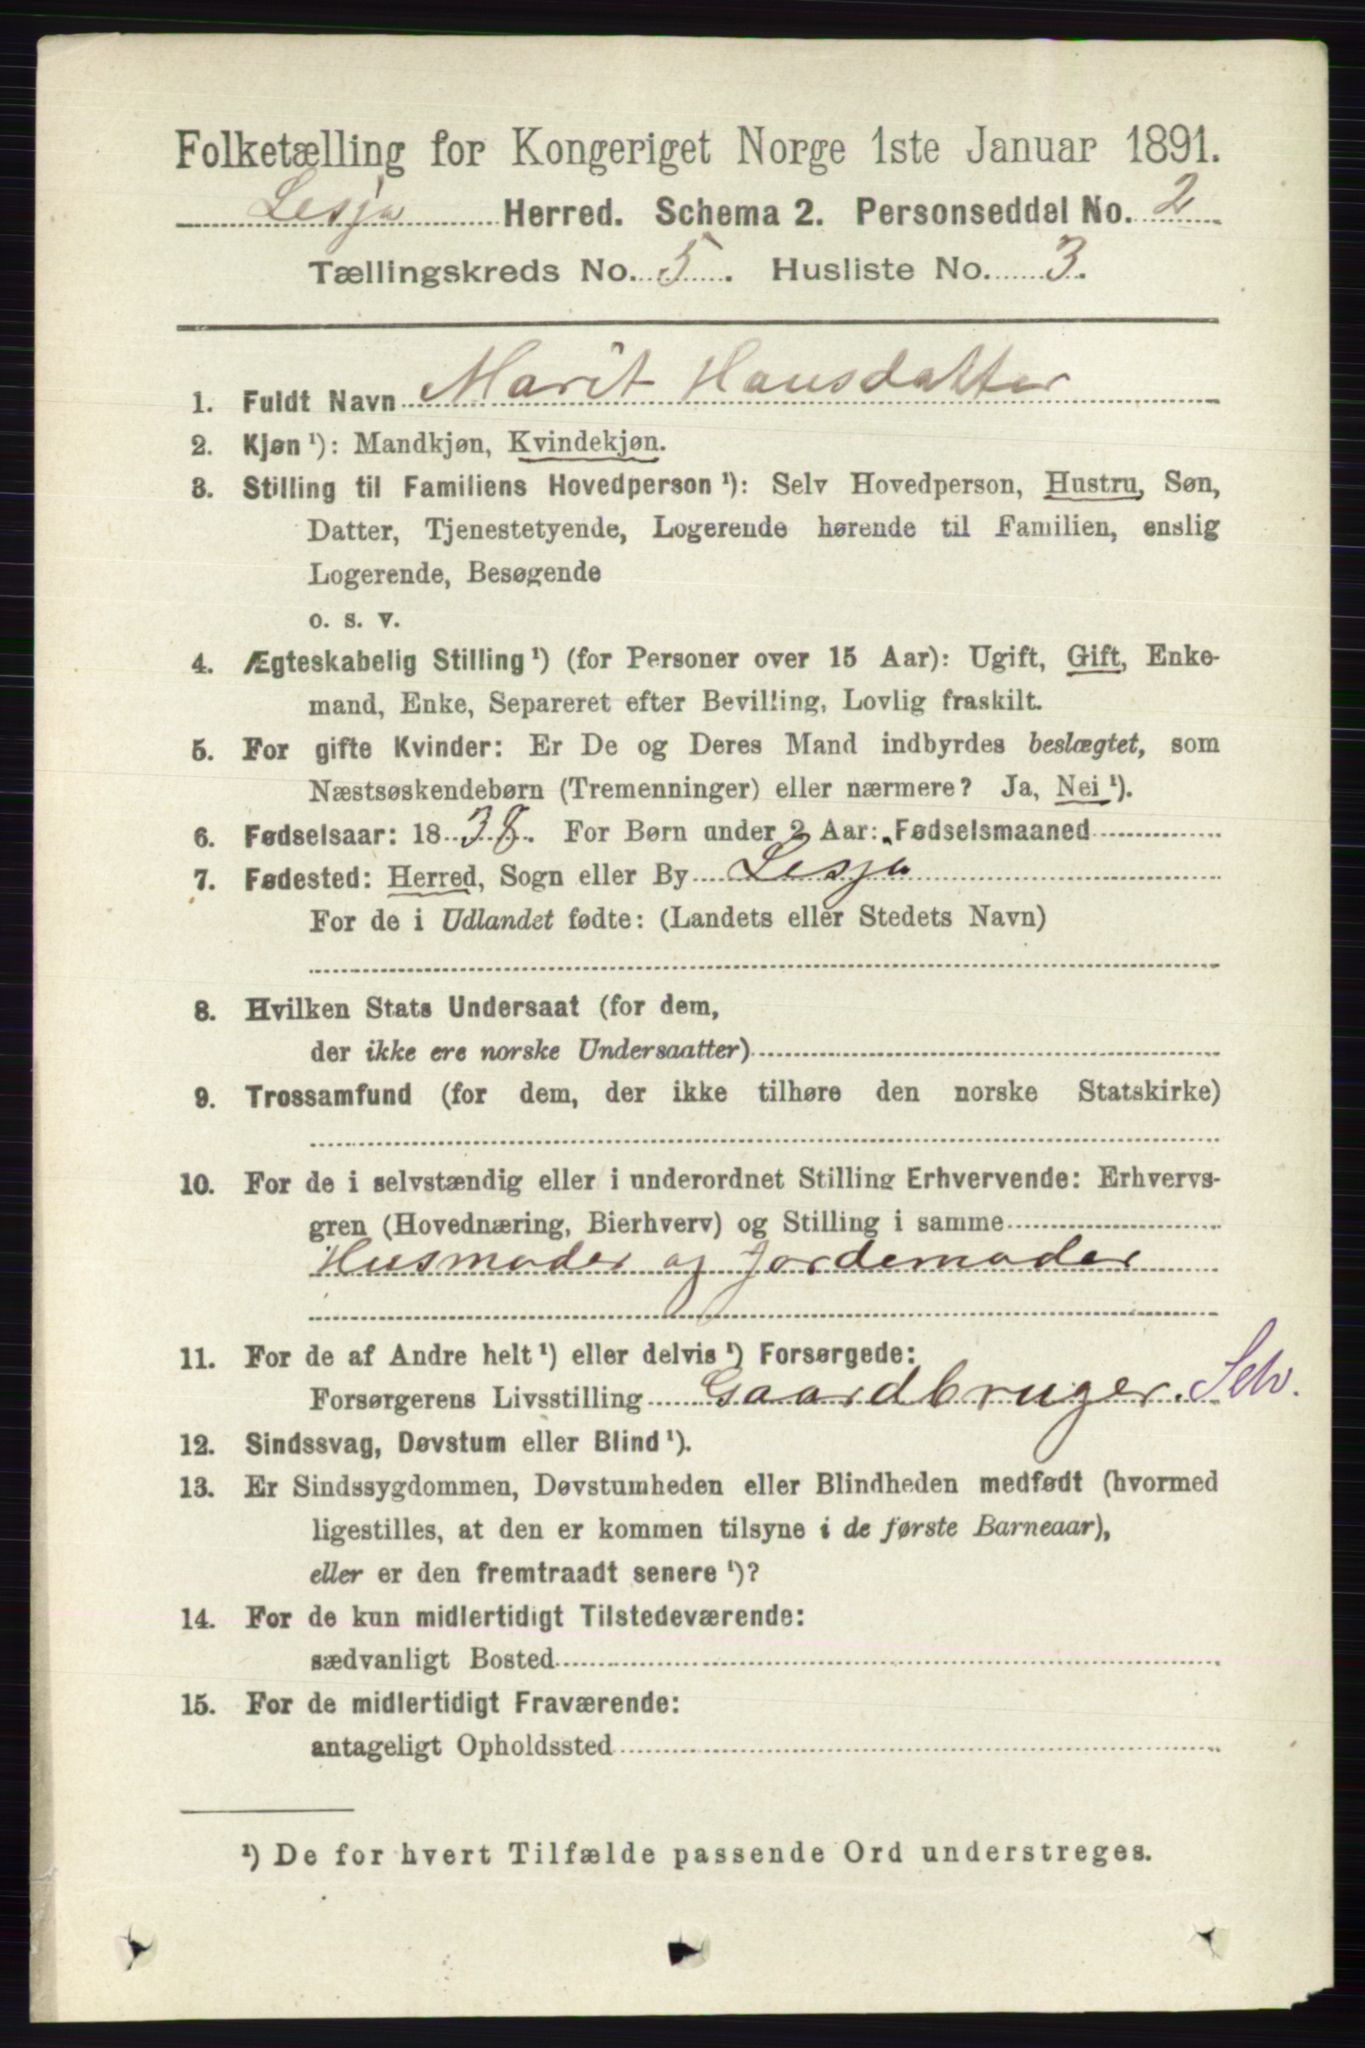 Folketælling for Kongeriget Norge 1ste Januar 1891.
Lesja Herred. Schema 2. Personseddel No. 2
Tællingskreds No. 5. Husliste No. 3.
1. Fuldt Navn Marit Hansdatter
2. Kjøn¹): Mandkjøn, Kvindekjøn.
3. Stilling til Familiens Hovedperson¹): Selv Hovedperson, Hustru, Søn,
Datter, Tjenestetyende, Logerende hørende til Familien, enslig
Logerende, Besøgende
o. s. v.
4. Ægteskabelig Stilling¹) (for Personer over 15 Aar): Ugift, Gift, Enke-
mand, Enke, Separeret efter Bevilling, Lovlig fraskilt.
5. For gifte Kvinder: Er De og Deres Mand indbyrdes beslægtet, som
Næstsøskendebørn (Tremenninger) eller nærmere? Ja, Nei¹).
6. Fødselsaar: 1838. For Børn under 2 Aar: Fødselsmaaned
7. Fødested: Herred, Sogn eller By Lesja
For de i Udlandet fødte: (Landets eller Stedets Navn)
8. Hvilken Stats Undersaat (for dem,
der ikke ere norske Undersaatter)
9. Trossamfund (for dem, der ikke tilhøre den norske Statskirke)
10. For de i selvstændig eller i underordnet Stilling Erhvervende: Erhvervs-
gren (Hovednæring, Bierhverv) og Stilling i samme
Husmoder og Jordemoder
11. For de af Andre helt¹) eller delvis¹) Forsørgede:
Forsørgerens Livsstilling Gaardbruger. Selv.
12. Sindssvag, Døvstum eller Blind¹).
13. Er Sindssygdommen, Døvstumheden eller Blindheden medfødt (hvormed
ligestilles, at den er kommen tilsyne i de første Barneaar),
eller er den fremtraadt senere¹)?
14. For de kun midlertidigt Tilstedeværende:
sædvanligt Bosted
15. For de midlertidigt Fraværende:
antageligt Opholdssted
¹) De for hvert Tilfælde passende Ord understreges.